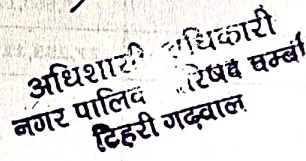 अधिशा धिकारी
नगर पालि रिषद चम्बा
टिहरी गढ़वाल